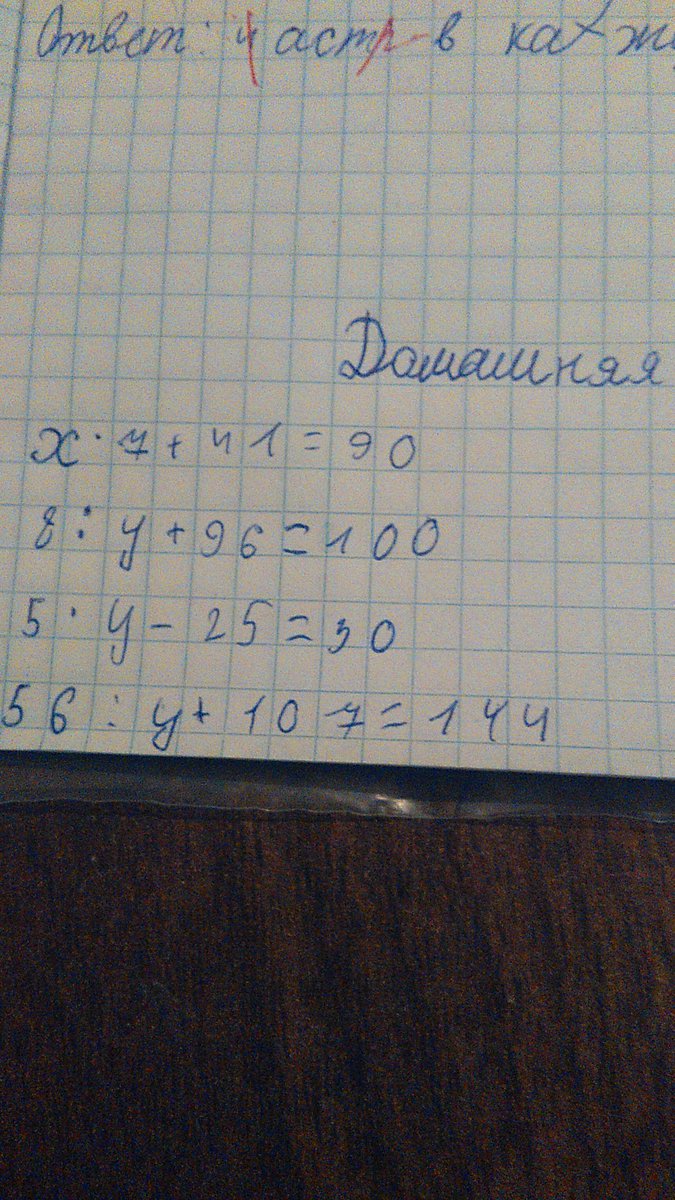 Ответ: 4 астр в каж
Домашняя
x · 7 + 41 = 90
8 : y + 96 = 100
5 · y - 25 = 30
56 : y + 107 = 144